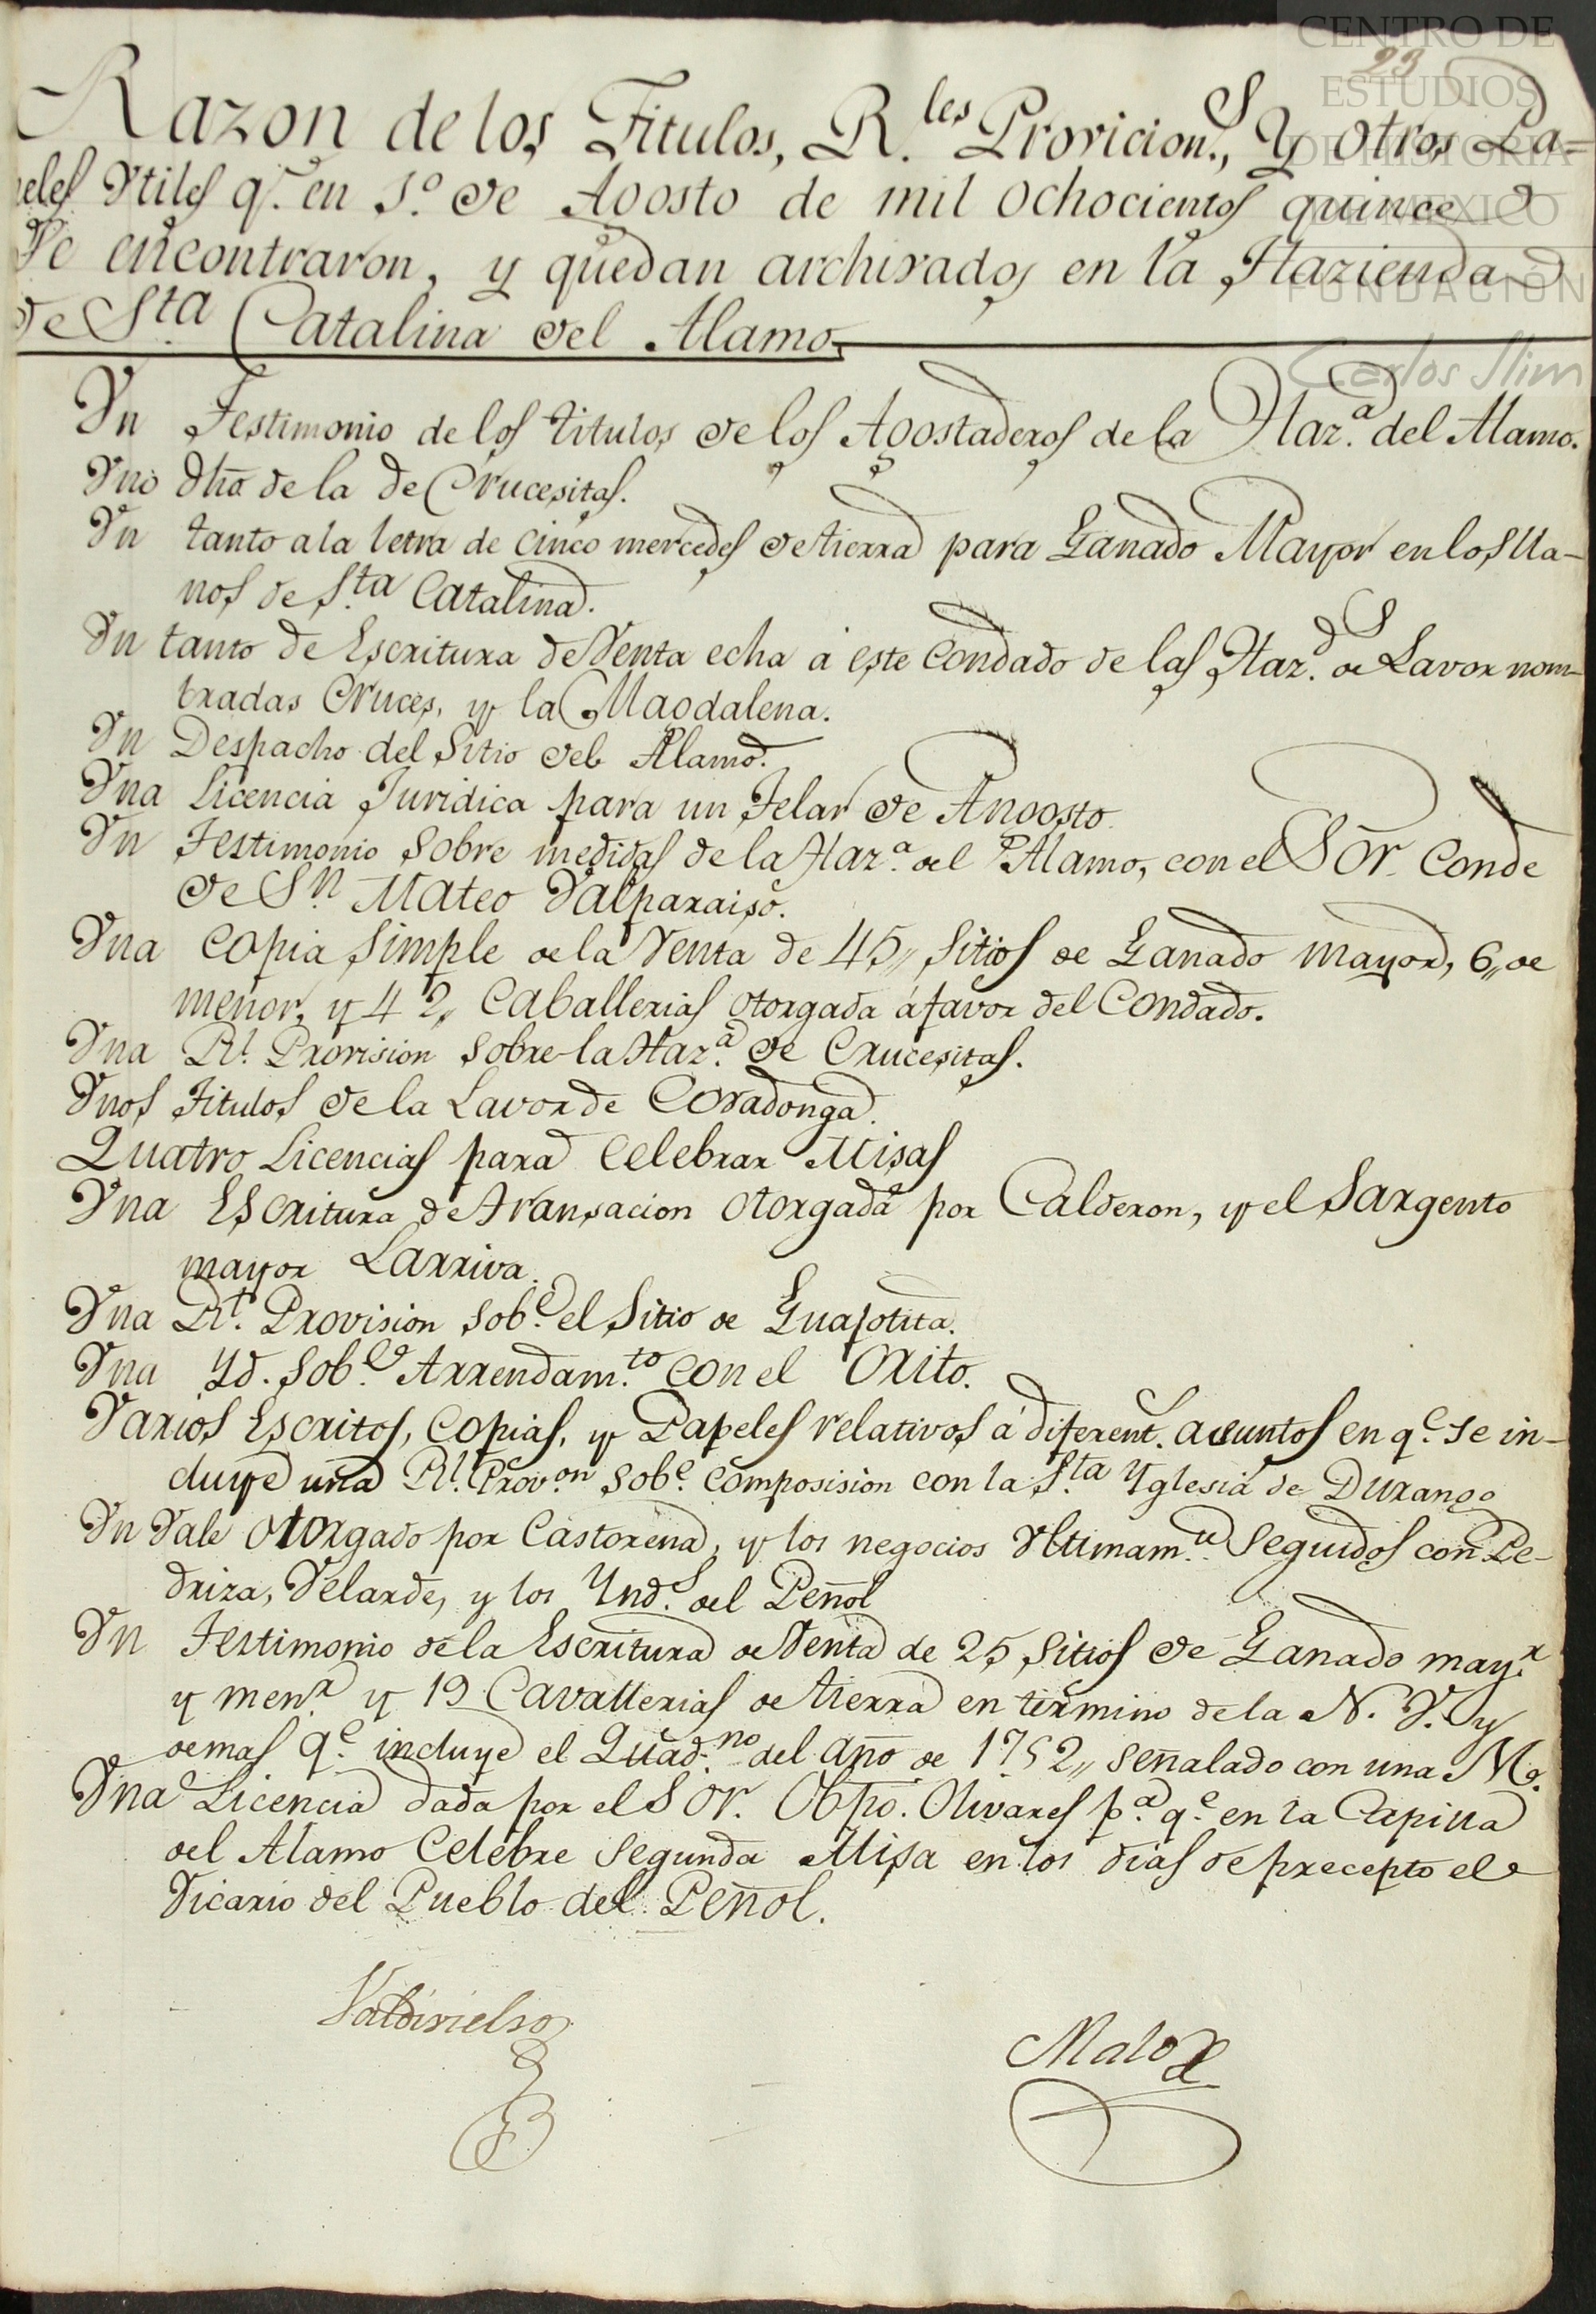 CENTRO DE
ESTUDIOS
DE HISTORIA
DE MEXICO
FUNDACIÓN
Carlos Slim
23
Razon de los Titulos, R.les Provicion.s, y otros Pa=
peles Vtiles q.e en 1.o de Agosto de mil ochocientos quince
Se encontraron, y quedan archivados en la Hazienda
de S.ta Catalina del Alamo,
Vn Testimonio de los titulos de los Agostaderos de la Haz.a del Alamo.
Vno dho de la de Crucesitas.
Vn tanto a la letra de cinco mercedes de tierra para Ganado Mayor en los lla-
nos de S.ta Catalina.
Vn tanto de Escritura de Venta echa á este Condado de las Haz.das de Lavor nom-
bradas Cruces, y la Magdalena.
Vn Despacho del Sitio del Alamo.
Vna Licencia Juridica para un Telar de Angosto.
Vn Testimonio sobre medidas de la Haz.a del Alamo, con el Sor. Conde
de S.n Mateo Valparaiso.
Vna Copia Simple de la Venta de 45,, Sitios de Ganado mayor, 6,, de
menor, y 42,, Caballerias otorgada á favor del Condado.
Vna R.l Provision sobre la Haz.a de Crucesitas.
Vnos Titulos de la Lavor de Covadonga.
Quatro Licencias para Celebrar Misas
Vna Escritura de transacion otorgada por Calderon, y el Sargento
mayor Larriva.
Vna R.l Provision sob.e el Sitio de Guapotita.
Vna Yd. sob.e Arrendam.to con el Orito.
Varios Escritos, Copias, y Papeles relativos á diferent.s asuntos en q.e se in-
cluye una R.l Prov.on sob.e composision con la S.ta Yglesia de Durango
Vn Vale otorgado por Castorena, y los negocios Vltimam.te seguidos con Pe-
driza, Velarde, y los Ynd.s del Peñol
Vn Testimonio de la Escritura de Venta de 25 Sitios de Ganado may.r
y men.r y 19 Cavallerias de tierra en termino de la N. V. y
demas q.e incluye el Quad.no del año de 1752,, señalado con una M.
Vna Licencia dada por el Sor. Obpo. Olivares p.a q.e en la Capilla
del Alamo Celebre segunda Misa en los dias de precepto el
Vicario del Pueblo del Peñol.
Valdivielso
Malo